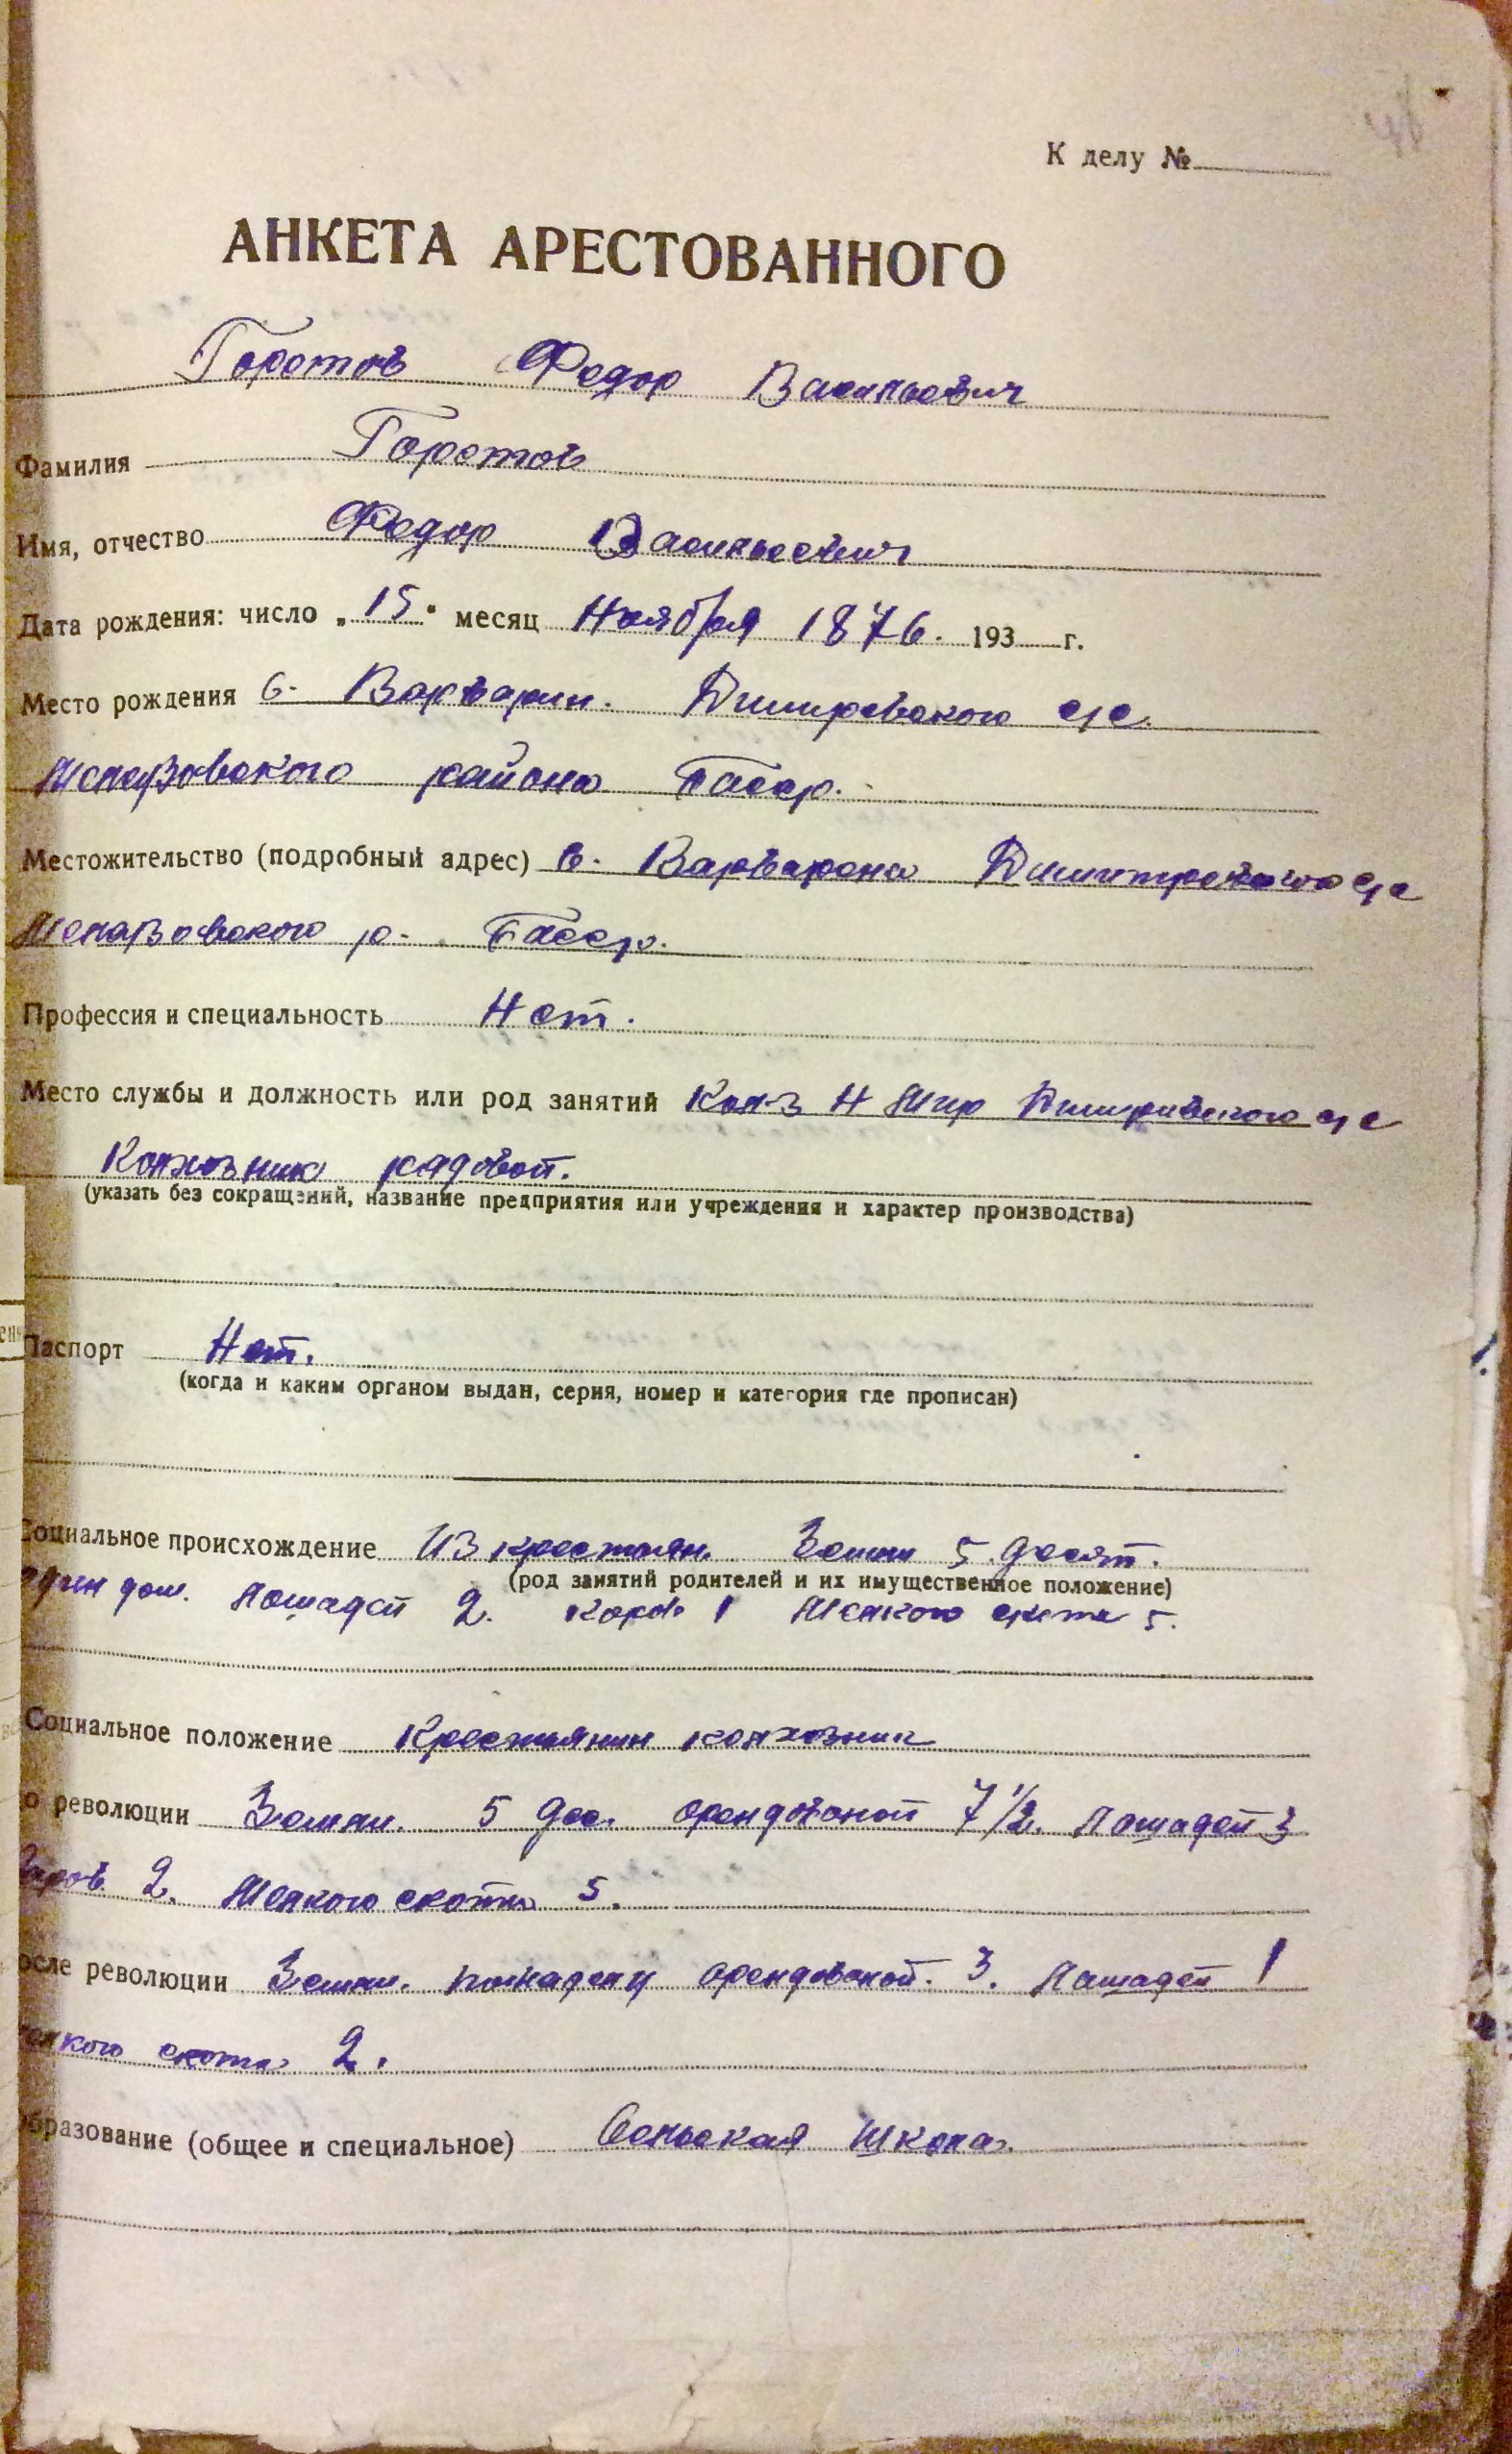 К делу №
АНКЕТА АРЕСТОВАННОГО
Горотов Федор Васильевич
Фамилия Горотов
Имя, отчество Федор Васильевич
Дата рождения: число „15" месяц Ноября 1876. 193 г.
Место рождения С. Варварин. Дмитревского с/с.
района Басср.
Местожительство (подробный адрес) С. Варварена Дмитревского с/с
р. Басср.
Профессия и специальность Нет.
Место службы и должность или род занятий Кол-з Н Мир с/с
Колхозник рядовой.
(указать без сокращений, название предприятия или учреждения и характер производства)
Паспорт Нет.
(когда и каким органом выдан, серия, номер и категория где прописан)
Социальное происхождение Из крестьян. Земли 5 десят.
(род занятий родителей и их имущественное положение)
один дом. Лошадей 2. Коров 1 Мелкого скота 5.
Социальное положение Крестьянин колхозник
о революции Земли. 5 дес. орендованой 7 1/2. Лошадей 3
Коров 2. Мелкого скота 5.
осле революции Земли. понаделу орендованой. 3. Лашадей 1
елкого скота 2.
бразование (общее и специальное) Сельская школа.